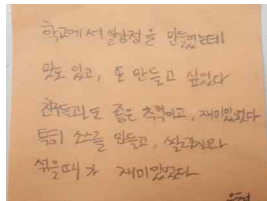 학교에서 쌀강정을 만들었는데
맛도 있고, 또 만들고 싶었다
친구들과도 좋은 추억이고, 재미있었다
특히 소스를 만들고, 쌀과자랑
섞을때가 재미있었다